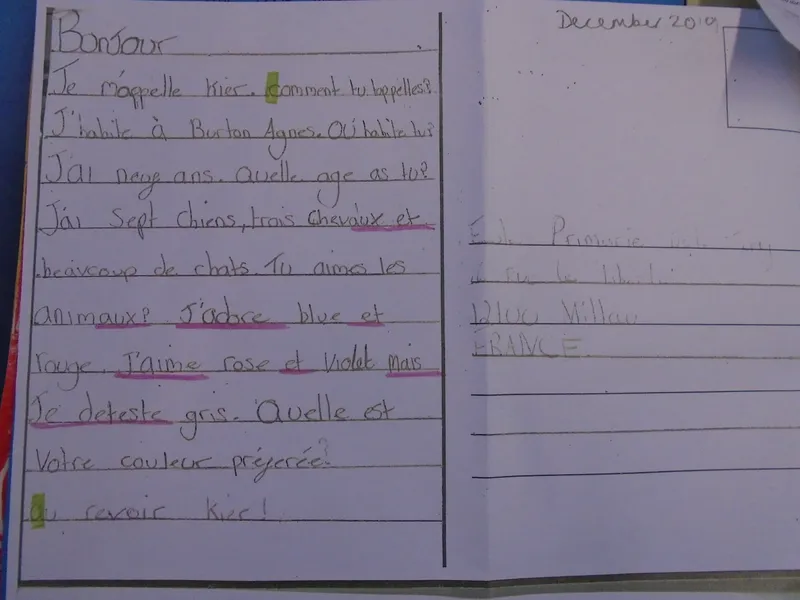 Bonjour
Je m'appelle Kier. comment tu t'appelles?
J'habite à Burton Agnes. Où habite tu?
J'ai neuf ans. Quelle age as tu?
J'ai Sept chiens, trois chevaux et
beaucoup de chats. Tu aimes les
animaux? J'adore blue et
rouge. J'aime rose et violet mais
Je deteste gris. Quelle est
Votre couleur préferée?
au revoir Kier!
December 2019
Primarie
rue le
12100 Millau
FRANCE